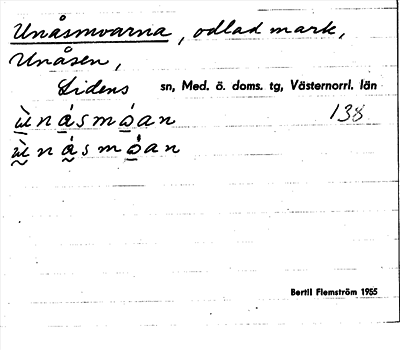 Unåsmoarna, odlad mark,
Unåsen,
Lidens sn, Med. ö. doms. tg, Västernorrl. län
ù̱nȧ̱smo̱an 138
ṵ̀nȧ̰smȯ̱an
Bertil Flemström 1955